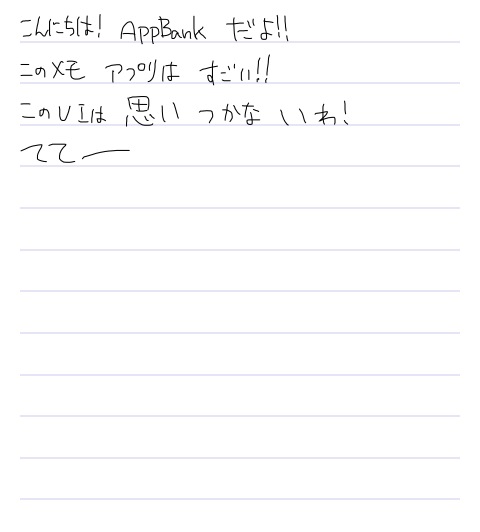 こんにちは! AppBank だよ!!
このメモ アプリは すごい!!
このUIは 思い つかな いわ!
ててー